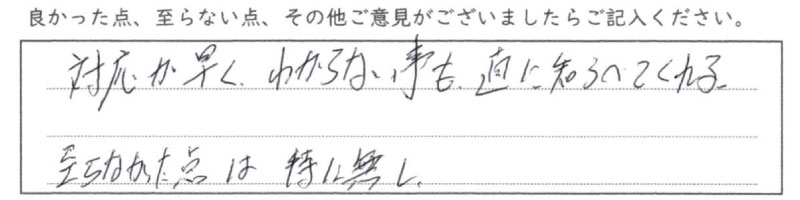 良かった点、至らない点、その他ご意見がございましたらご記入ください。
対応が早く、わからない事も、直に知らべてくれる。
至らなかった点は 特に無し。